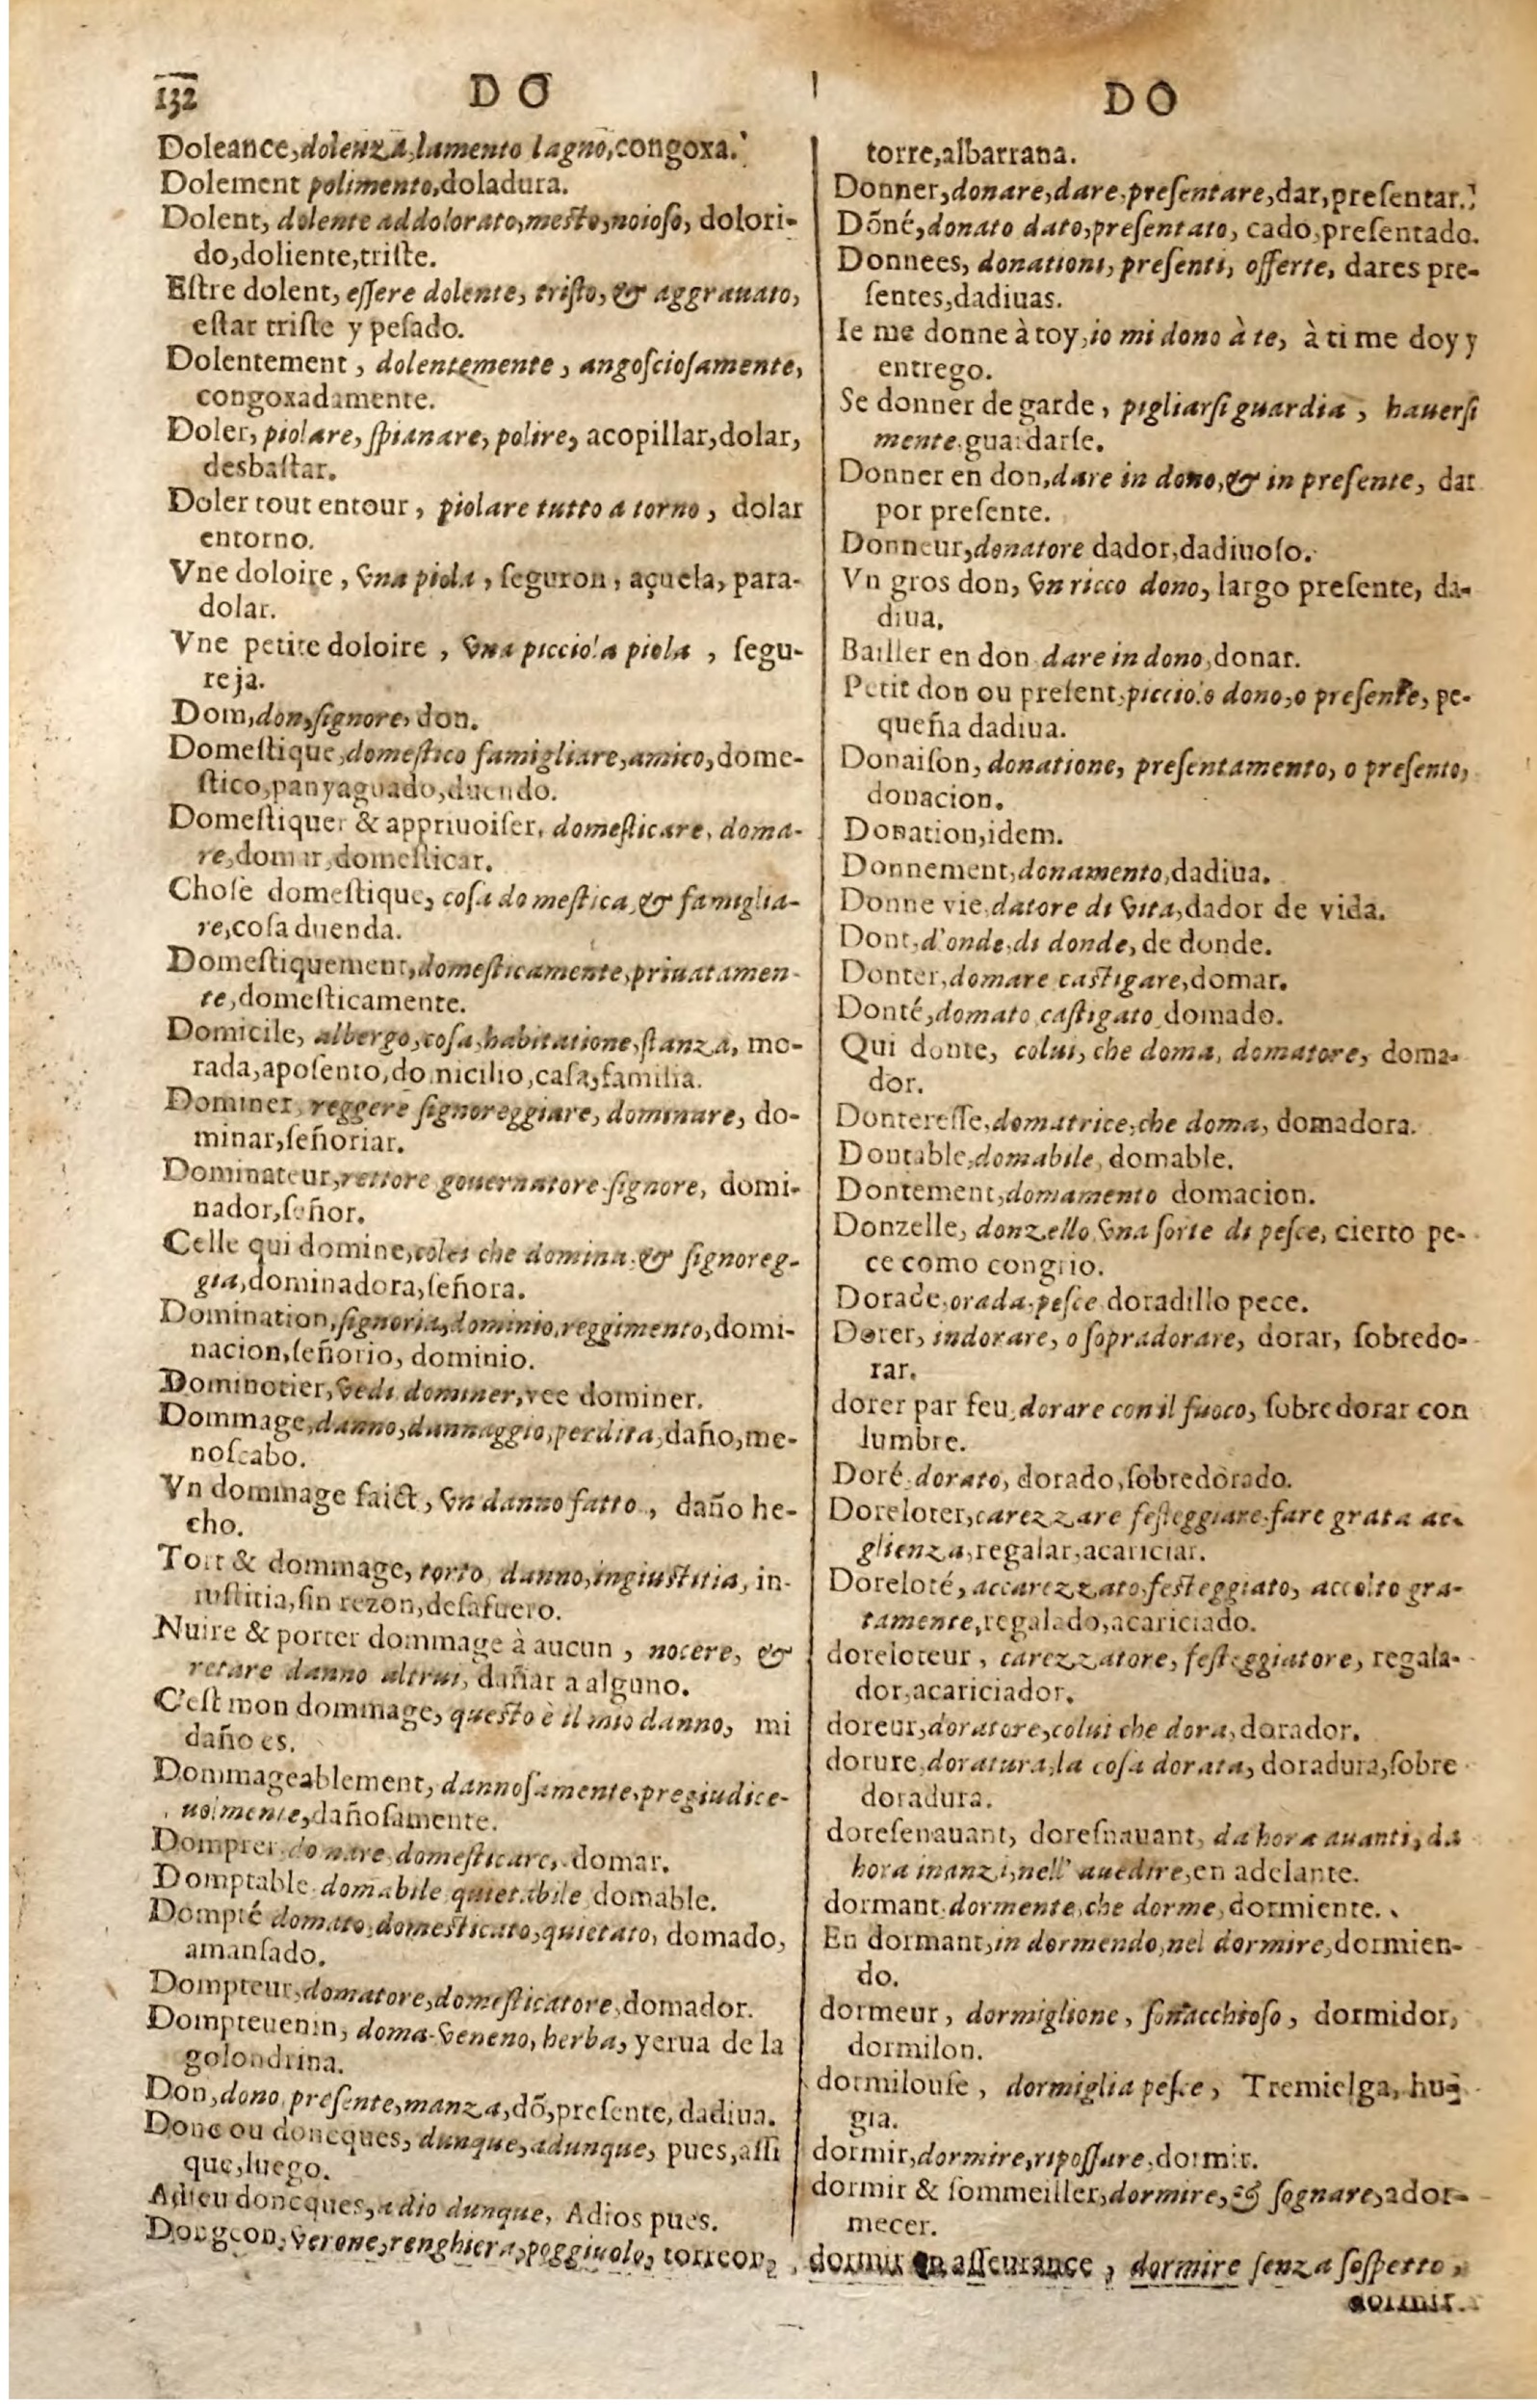 132
DO
Doleance, dolenza, lamento lagno, congoxa.
Dolement polimento, doladura.
Dolent, dolente addolorato, mesto, noioso, dolori-
do, doliente, triſte.
Eſtre dolent, eſſere dolente, triſto, & aggrauato,
eſtar triſte y peſado.
Dolentement, dolentemente, angoſcioſamente,
congoxadamente.
Doler, piolare, ſpianare, polire, acopillar, dolar,
desbaſtar.
Doler tout entour, piolare tutto a torno, dolar
entorno.
Vne doloire, vna piola, ſeguron, açuela, para-
dolar.
Vne petite doloire, vna picciola piola, ſegu-
reja.
Dom, don, ſignore, don.
Domeſtique, domeſtico famigliare, amico, dome-
ſtico, panyaguado, duendo.
Domeſtiquer & appriuoiſer, domeſticare, doma-
re, domar, domeſticar.
Choſe domeſtique, coſa domeſtica, & famiglia-
re, coſa duenda.
Domeſtiquement, domeſticamente, priuatamen-
te, domeſticamente.
Domicile, albergo, coſa, habitatione, ſtanza, mo-
rada, apoſento, domicilio, caſa, familia.
Dominer reggere ſignoreggiare, dominare, do-
minar, ſeñoriar.
Dominateur, rettore gouernatore ſignore, domi-
nador, ſeñor.
Celle qui domine, colei che domina, & ſignoreg-
gia, dominadora, ſeñora.
Domination, ſignoria, dominio, reggimento, domi-
nacion, ſeñorio, dominio.
Dominotier, vedi dominer, vee dominer.
Dommage, danno, dannaggio, perdita, daño, me-
noſcabo.
Vn dommage faict, vn danno fatto, daño he-
cho.
Tort & dommage, torto, danno, ingiuſtitia, in-
iuſtitia, ſin rezon, deſafuero.
Nuire & porter dommage à aucun, nocere, &
retare danno altrui, dañar a alguno.
C'eſt mon dommage, queſto è il mio danno, mi
daño es.
Dommageablement, dannoſamente, pregiudice-
uolmente, dañoſamente.
Dompter domare domeſticare, domar.
Domptable domabile quietabile domable.
Dompté domato, domeſticato, quietato, domado,
amanſado.
Dompteur, domatore, domeſticatore, domador.
Dompteuenin, doma-veneno, herba, yerua de la
golondrina.
Don, dono, preſente, manza, dõ, preſente, dadiua.
Donc ou doncques, dunque, adunque, pues, aſſi
que, luego.
Adieu doncques, a dio dunque, Adios pues.
Dongeon, verone, renghiera, poggiuolo, torreon,
DO
torre, albarrana.
Donner, donare, dare, preſentare, dar, preſentar.
Dõné, donato dato, preſentato, cado, preſentado.
Donnees, donationi, preſenti, offerte, dares pre-
ſentes, dadiuas.
Ie me donne à toy, io mi dono à te, à ti me doy y
entrego.
Se donner de garde, pigliarſi guardia, hauerſi
mente, guardarſe.
Donner en don, dare in dono, & in preſente, dar
por preſente.
Donneur, donatore dador, dadiuoſo.
Vn gros don, vn ricco dono, largo preſente, da-
diua.
Bailler en don dare in dono, donar.
Petit don ou preſent, picciolo dono, o preſente, pe-
queña dadiua.
Donaiſon, donatione, preſentamento, o preſento,
donacion.
Donation, idem.
Donnement, donamento, dadiua.
Donne vie, datore di vita, dador de vida.
Dont, d'onde, di donde, de donde.
Donter, domare caſtigare, domar.
Donté, domato caſtigato domado.
Qui donte, colui, che doma, domatore, doma-
dor.
Dontereſſe, domatrice, che doma, domadora.
Dontable, domabile, domable.
Dontement, domamento domacion.
Donzelle, donzello vna ſorte di peſce, cierto pe-
ce como congrio.
Dorade, orada, peſce doradillo pece.
Dorer, indorare, o ſopradorare, dorar, ſobredo-
rar.
dorer par feu, dorare con il fuoco, ſobredorar con
lumbre.
Doré, dorato, dorado, ſobredorado.
Doreloter, carezzare feſteggiare, fare grata ac-
glienza, regalar, acariciar.
Doreloté, accarezzato, feſteggiato, accolto gra-
tamente, regalado, acariciado.
doreloteur, carezzatore, feſteggiatore, regala-
dor, acariciador.
doreur, doratore, colui che dora, dorador.
dorure, doratura, la coſa dorata, doradura, ſobre
doradura.
doreſenauant, doreſnauant, da hora auanti, da
hora inanzi, nell' auedire, en adelante.
dormant, dormente, che dorme, dormiente.
En dormant, in dormendo, nel dormire, dormien-
do.
dormeur, dormiglione, ſonacchioſo, dormidor,
dormilon.
dormilouſe, dormiglia peſce, Tremielga, hug-
gia.
dormir, dormire, ripoſſare, dormir.
dormir & ſommeiller, dormire, & ſognare, ador-
mecer.
dormir en aſſeurance, dormire ſenza ſoſpetto,
dormir.